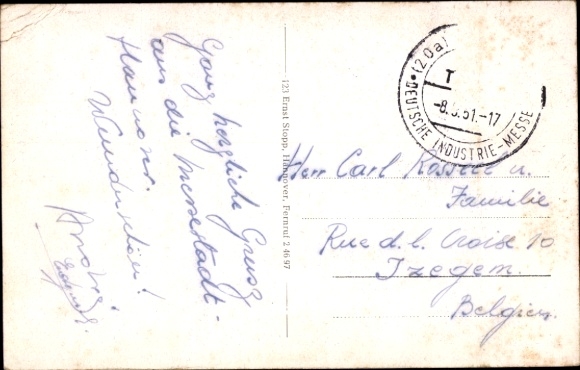 Ganz herzliche Grüsze
aus die Messestadt-
Hannover.
Wunderschön!
123 Ernst Stopp, Hannover, Fernruf 2 46 97
(20a)
T
-8.5.51.-17
DEUTSCHE INDUSTRIE-MESSE
Herr Carl u.
Familie
Rue d. l. Croise 10
Izegem.
Belgien.